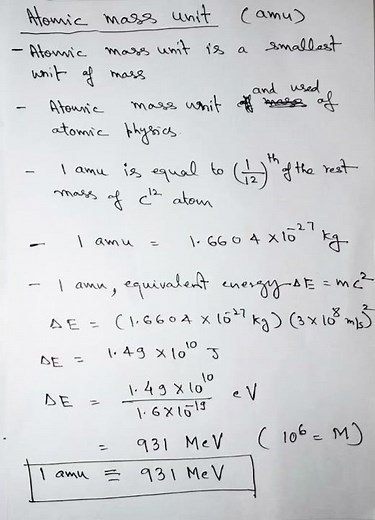 Atomic mass unit (amu)
- Atomic mass unit is a smallest
unit of mass
- Atomic mass unit and used of
atomic physics.
- 1 amu is equal to (1/12)ᵗʰ of the rest
mass of C¹² atom
- 1 amu = 1.6604 × 10⁻²⁷ kg
- 1 amu, equivalent energy ΔE = mc²
ΔE = (1.6604 × 10⁻²⁷ kg) (3 × 10⁸ m/s)²
ΔE = 1.49 × 10¹⁰ J
ΔE = 1.49 × 10¹⁰ / 1.6 × 10⁻¹⁹ eV
= 931 MeV (10⁶ = M)
1 amu ≡ 931 MeV